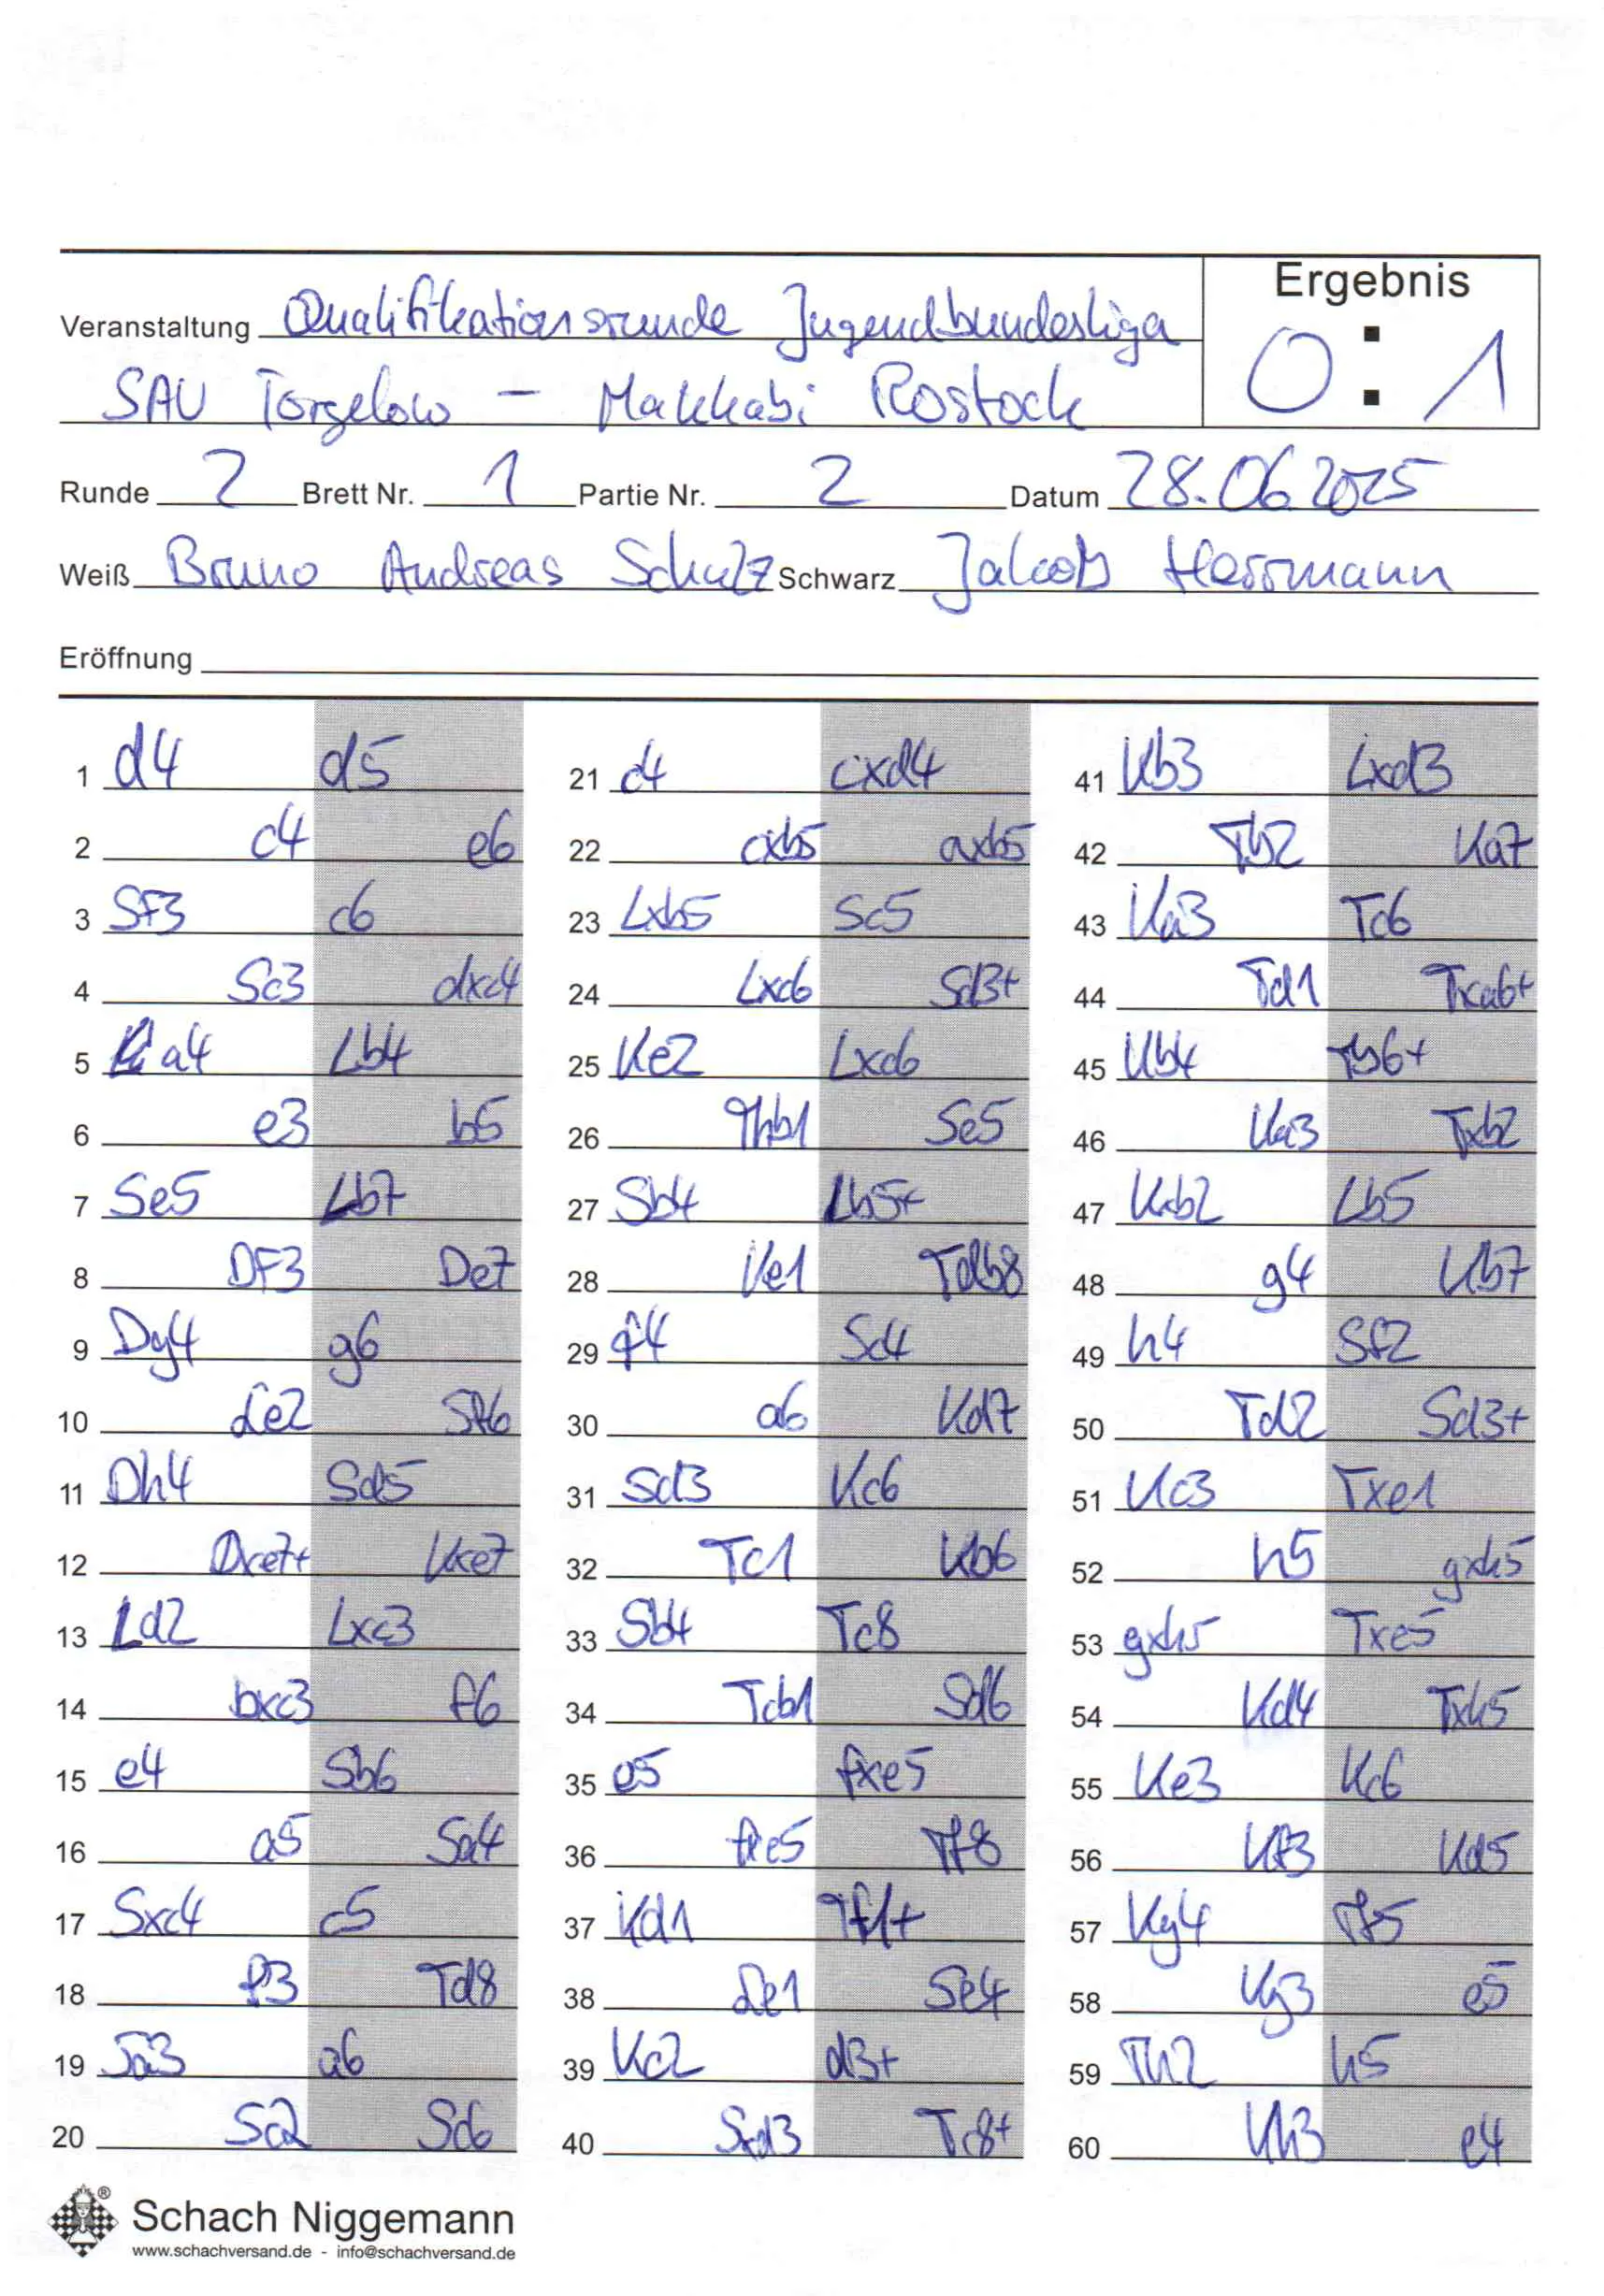 Ergebnis
Veranstaltung Qualifikationsrunde Jugendbundesliga
0 : 1
SAV Torgelow - Makkabi Rostock
Runde 2 Brett Nr. 1 Partie Nr. 2 Datum 28.06.2025
Weiß Bruno Andreas Schulz Schwarz Jakob Herrmann
Eröffnung
1 d4 d5
2 c4 e6
3 Sf3 c6
4 Sc3 dxc4
5 a4 Lb4
6 e3 b5
7 Se5 Lb7
8 DF3 De7
9 Dg4 g6
10 Le2 Sf6
11 Dh4 Sd5
12 Dxe7+ Kxe7
13 Ld2 Lxc3
14 bxc3 f6
15 e4 Sb6
16 a5 Sa4
17 Sxc4 c5
18 f3 Td8
19 Sa3 a6
20 Sc2 Sc6
21 c4 cxd4
22 cxb5 axb5
23 Lxb5 Sc5
24 Lxc6 Sd3+
25 Ke2 Lxc6
26 Thb1 Se5
27 Sb4 Lb5+
28 Ke1 Tdb8
29 f4 Sc4
30 a6 Kd7
31 Sd3 Kc6
32 Tc1 Kb6
33 Sb4 Tc8
34 Tcb1 Sd6
35 e5 fxe5
36 fxe5 Tf8
37 Kd1 Tf1+
38 Le1 Se4
39 Kc2 d3+
40 Sxd3 Tc8+
41 Kb3 Lxd3
42 Tb2 Ka7
43 Ka3 Tc6
44 Td1 Txa6+
45 Kb4 Tb6+
46 Ka3 Txb2
47 Kxb2 Lb5
48 g4 Kb7
49 h4 Sf2
50 Td2 Sd3+
51 Kc3 Txe1
52 h5 gxh5
53 gxh5 Txe5
54 Kd4 Txh5
55 Ke3 Kc6
56 Kf3 Kd5
57 Kg4 Tf5
58 Kg3 e5
59 Th2 h5
60 Kh3 e4
® Schach Niggemann
www.schachversand.de - info@schachversand.de